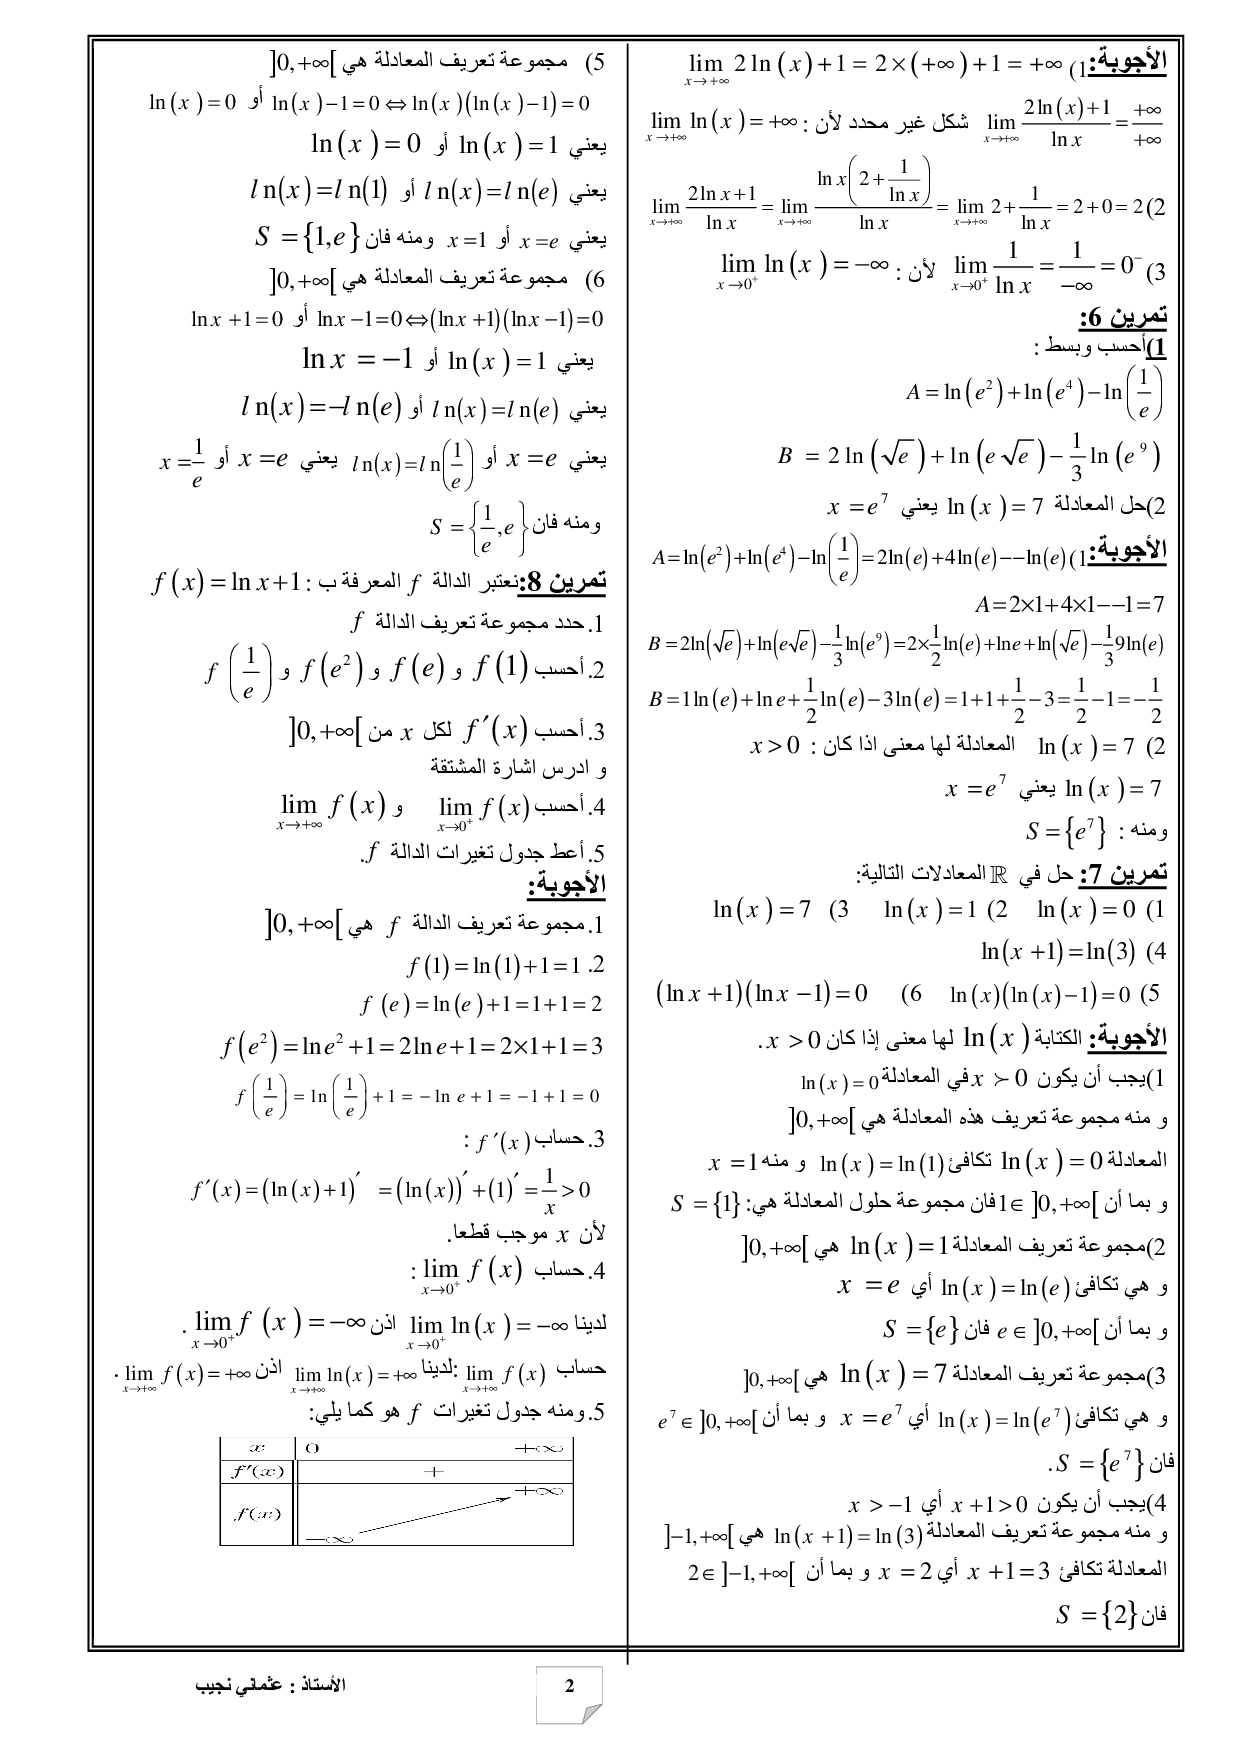 الأجوبة: 1) lim_{x→+∞} 2 ln(x)+1 = 2×(+∞)+1 = +∞
lim_{x→+∞} (2ln(x)+1)/(ln x) = +∞/+∞ شكل غير محدد لأن : lim_{x→+∞} ln(x) = +∞
2) lim_{x→+∞} (2ln x+1)/(ln x) = lim_{x→+∞} (ln x(2+1/(ln x)))/(ln x) = lim_{x→+∞} 2+1/(ln x) = 2+0 = 2
3) lim_{x→0⁺} 1/(ln x) = 1/(−∞) = 0⁻ لأن : lim_{x→0⁺} ln(x) = −∞
تمرين 6:
1)أحسب وبسط :
A = ln(e²)+ln(e⁴)−ln(1/e)
B = 2 ln(√e)+ln(e√e)−(1/3)ln(e⁹)
2)حل المعادلة ln(x) = 7 يعني x = e⁷
الأجوبة: 1) A = ln(e²)+ln(e⁴)−ln(1/e) = 2ln(e)+4ln(e)−−ln(e)
A = 2×1+4×1−−1 = 7
B = 2ln(√e)+ln(e√e)−(1/3)ln(e⁹) = 2×(1/2)ln(e)+ln e+ln(√e)−(1/3)9ln(e)
B = 1ln(e)+ln e+(1/2)ln(e)−3ln(e) = 1+1+1/2−3 = 1/2−1 = −1/2
2) ln(x) = 7 المعادلة لها معنى اذا كان : x > 0
ln(x) = 7 يعني x = e⁷
ومنه : S = {e⁷}
تمرين 7: حل في ℝ المعادلات التالية:
1) ln(x) = 0 2) ln(x) = 1 3) ln(x) = 7
4) ln(x+1) = ln(3)
5) ln(x)(ln(x)−1) = 0 6) (ln x+1)(ln x−1) = 0
الأجوبة: الكتابة ln(x) لها معنى إذا كان x > 0 .
1)يجب أن يكون x ≻ 0 في المعادلة ln(x) = 0
و منه مجموعة تعريف هذه المعادلة هي ]0,+∞[
المعادلة ln(x) = 0 تكافئ ln(x) = ln(1) و منه x = 1
و بما أن 1∈ ]0,+∞[ فان مجموعة حلول المعادلة هي: S = {1}
2)مجموعة تعريف المعادلة ln(x) = 1 هي ]0,+∞[
و هي تكافئ ln(x) = ln(e) أي x = e
و بما أن e ∈ ]0,+∞[ فان S = {e}
3)مجموعة تعريف المعادلة ln(x) = 7 هي ]0,+∞[
و هي تكافئ ln(x) = ln(e⁷) أي x = e⁷ و بما أن e⁷ ∈ ]0,+∞[
فان S = {e⁷} .
4)يجب أن يكون x+1 > 0 أي x > −1
و منه مجموعة تعريف المعادلة ln(x+1) = ln(3) هي ]−1,+∞[
المعادلة تكافئ x+1 = 3 أي x = 2 و بما أن 2∈ ]−1,+∞[
فان S = {2}
5) مجموعة تعريف المعادلة هي ]0,+∞[
ln(x)(ln(x)−1) = 0 ⇔ ln(x)−1 = 0 أو ln(x) = 0
يعني ln(x) = 1 أو ln(x) = 0
يعني ln(x) = ln(e) أو ln(x) = ln(1)
يعني x = e أو x = 1 ومنه فان S = {1,e}
6) مجموعة تعريف المعادلة هي ]0,+∞[
(ln x+1)(ln x−1) = 0 ⇔ ln x−1 = 0 أو ln x+1 = 0
يعني ln(x) = 1 أو ln x = −1
يعني ln(x) = ln(e) أو ln(x) = −ln(e)
يعني x = e أو ln(x) = ln(1/e) يعني x = e أو x = 1/e
ومنه فان S = {1/e, e}
تمرين 8: نعتبر الدالة f المعرفة ب : f(x) = ln x+1
1. حدد مجموعة تعريف الدالة f
2. أحسب f(1) و f(e) و f(e²) و f(1/e)
3. أحسب f′(x) لكل x من ]0,+∞[
و ادرس اشارة المشتقة
4. أحسب lim_{x→0⁺} f(x) و lim_{x→+∞} f(x)
5. أعط جدول تغيرات الدالة f .
الأجوبة:
1. مجموعة تعريف الدالة f هي ]0,+∞[
2. f(1) = ln(1)+1 = 1
f(e) = ln(e)+1 = 1+1 = 2
f(e²) = ln e²+1 = 2ln e+1 = 2×1+1 = 3
f(1/e) = ln(1/e)+1 = −ln e+1 = −1+1 = 0
3. حساب f′(x) :
f′(x) = (ln(x)+1)′ = (ln(x))′+(1)′ = 1/x > 0
لأن x موجب قطعا.
4. حساب lim_{x→0⁺} f(x) :
لدينا lim_{x→0⁺} ln(x) = −∞ اذن lim_{x→0⁺} f(x) = −∞ .
حساب lim_{x→+∞} f(x) :لدينا lim_{x→+∞} ln(x) = +∞ اذن lim_{x→+∞} f(x) = +∞ .
5. ومنه جدول تغيرات f هو كما يلي:
x 0 +∞
f′(x) +
f(x) −∞ +∞
2
الأستاذ : عثماني نجيب